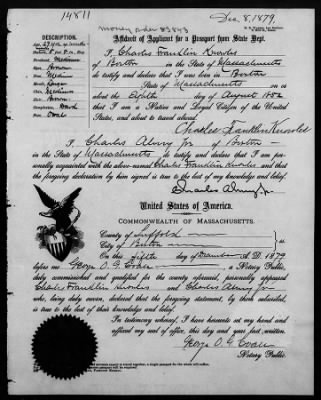 14811
Dec. 8, 1879.
money order 83843
Affidavit of Applicant for a Passport from State Dept.
DESCRIPTION.
I, Charles Franklin Knowles
of Boston in the State of Massachusetts
do testify and declare that I was born in Boston
State of Massachusetts on or
about the Fifth day of August 1852
that I am a Native and Loyal Citizen of the United
States, and about to travel abroad.
Charles Franklin Knowles
I, Charles Almy Jr of Boston
in the State of Massachusetts, do testify and declare that I am per-
sonally acquainted with the above-named Charles Franklin Knowles and that the
foregoing declaration by him signed is true to the best of my knowledge and belief.
Charles Almy Jr.
United States of America.
COMMONWEALTH OF MASSACHUSETTS.
County of Suffolk
City of Boston
ss.
On this fifth day of December A. D. 1879
before me George O. G. Coale, a Notary Public,
duly commissioned and qualified for the county aforesaid, personally appeared
Charles Franklin Knowles and Charles Almy Jr
who, being duly sworn, declared that the foregoing statement, by them subscribed,
is true to the best of their knowledge and belief.
In testimony whereof, I have hereunto set my hand and
affixed my seal of office, this day and year first written.
George O. G. Coale
Notary Public.